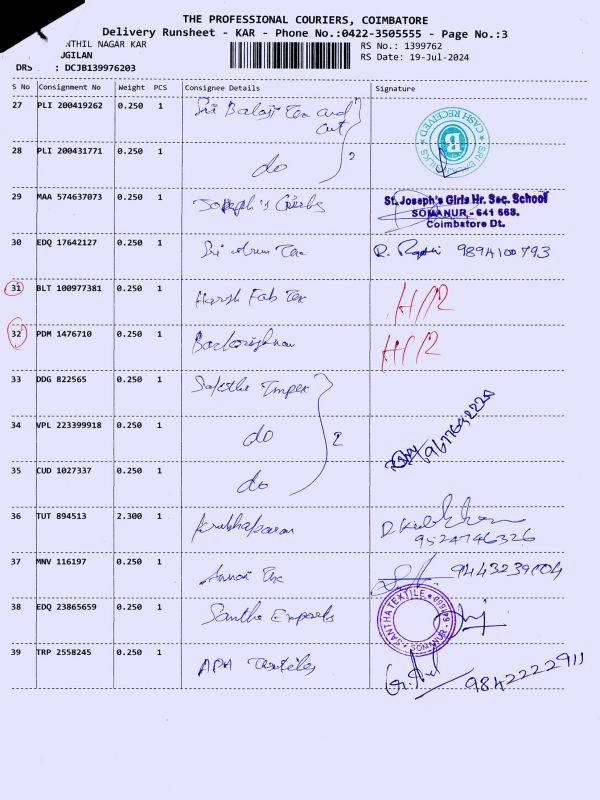 THE PROFESSIONAL COURIERS, COIMBATORE
Delivery Runsheet - KAR - Phone No.:0422-3505555 - Page No.:3
NTHIL NAGAR KAR
RS No.: 1399762
UGILAN
RS Date: 19-Jul-2024
DRS : DCJB139976203
S No Consignment No Weight PCS Consignee Details Signature
27 PLI 200419262 0.250 1 Sri Balaji Tex and
CASH RECEIVED
28 PLI 200431771 0.250 1 do 2
29 MAA 574637073 0.250 1 Joseph's Girls St. Joseph's Girls Hr. Sec. School
SOMANUR - 641 668.
Coimbatore Dt.
30 EDQ 17642127 0.250 1 Sri Tex 9894100793
31 BLT 100977381 0.250 1 Harsh Fab Tex H/R
32 PDM 1476710 0.250 1 H/R
33 DDG 822565 0.250 1 Sakthi Impex
34 VPL 223399918 0.250 1 do 2
35 CUD 1027337 0.250 1 do
36 TUT 894513 2.300 1 9524746326
37 MNV 116197 0.250 1
38 EDQ 23865659 0.250 1 Santha Exports SANTHA TEXTILE SOMANUR
39 TRP 2558245 0.250 1 APM Textiles 9842222911